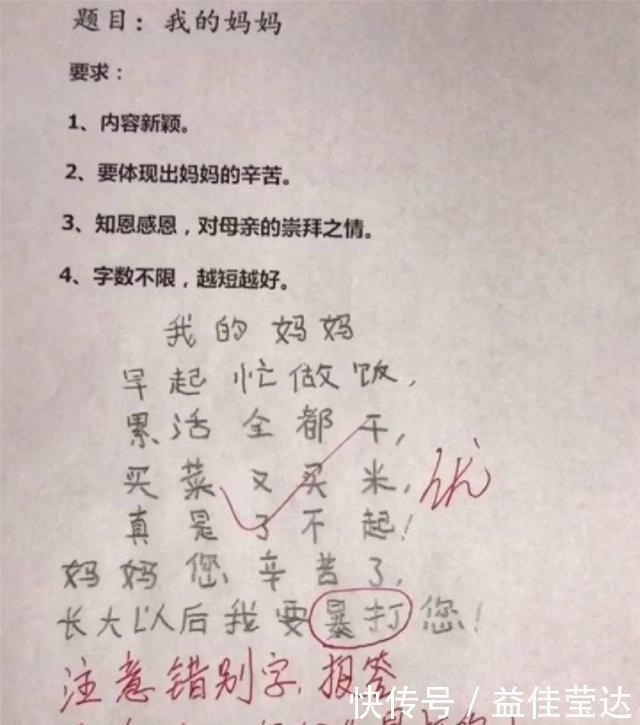 题目：我的妈妈
要求：
1、内容新颖。
2、要体现出妈妈的辛苦。
3、知恩感恩，对母亲的崇拜之情。
4、字数不限，越短越好。
我的妈妈
早起忙做饭，
累活全都干，
买菜又买米，
优
真是了不起！
妈妈您辛苦了，
长大以后我要暴打您！
注意错别字，报答
快传号／益佳莹达